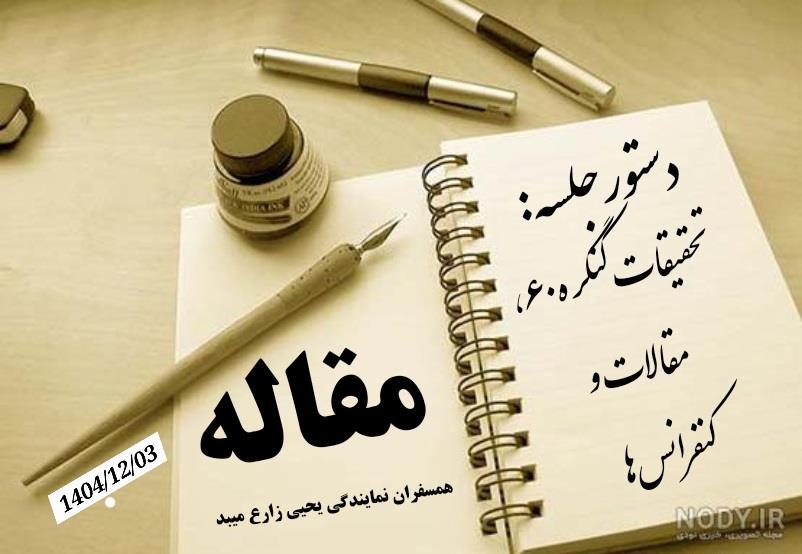 دستور جلسه:
تحقیقات کنگره ۶۰،
مقالات و
کنفرانس‌ها
مقاله
همسفران نمایندگی یحیی زارع میبد
1404/12/03
INDIA INK
NODY.IR
مجله تصویری، خبری نودی